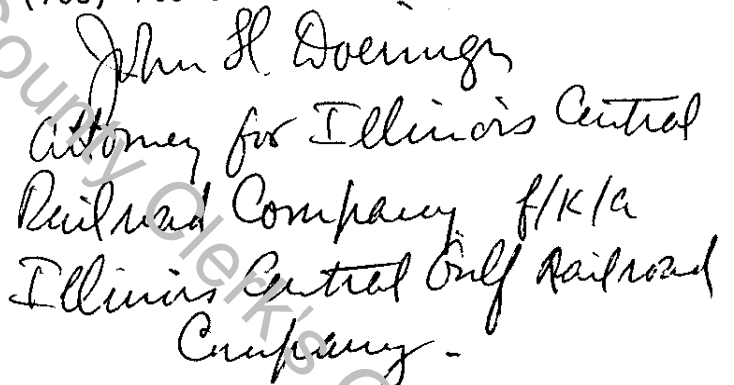 John H. Doeringer
Attorney for Illinois Central
Railroad Company f/k/a
Illinois Central Gulf Railroad
Company.
County Clerk's